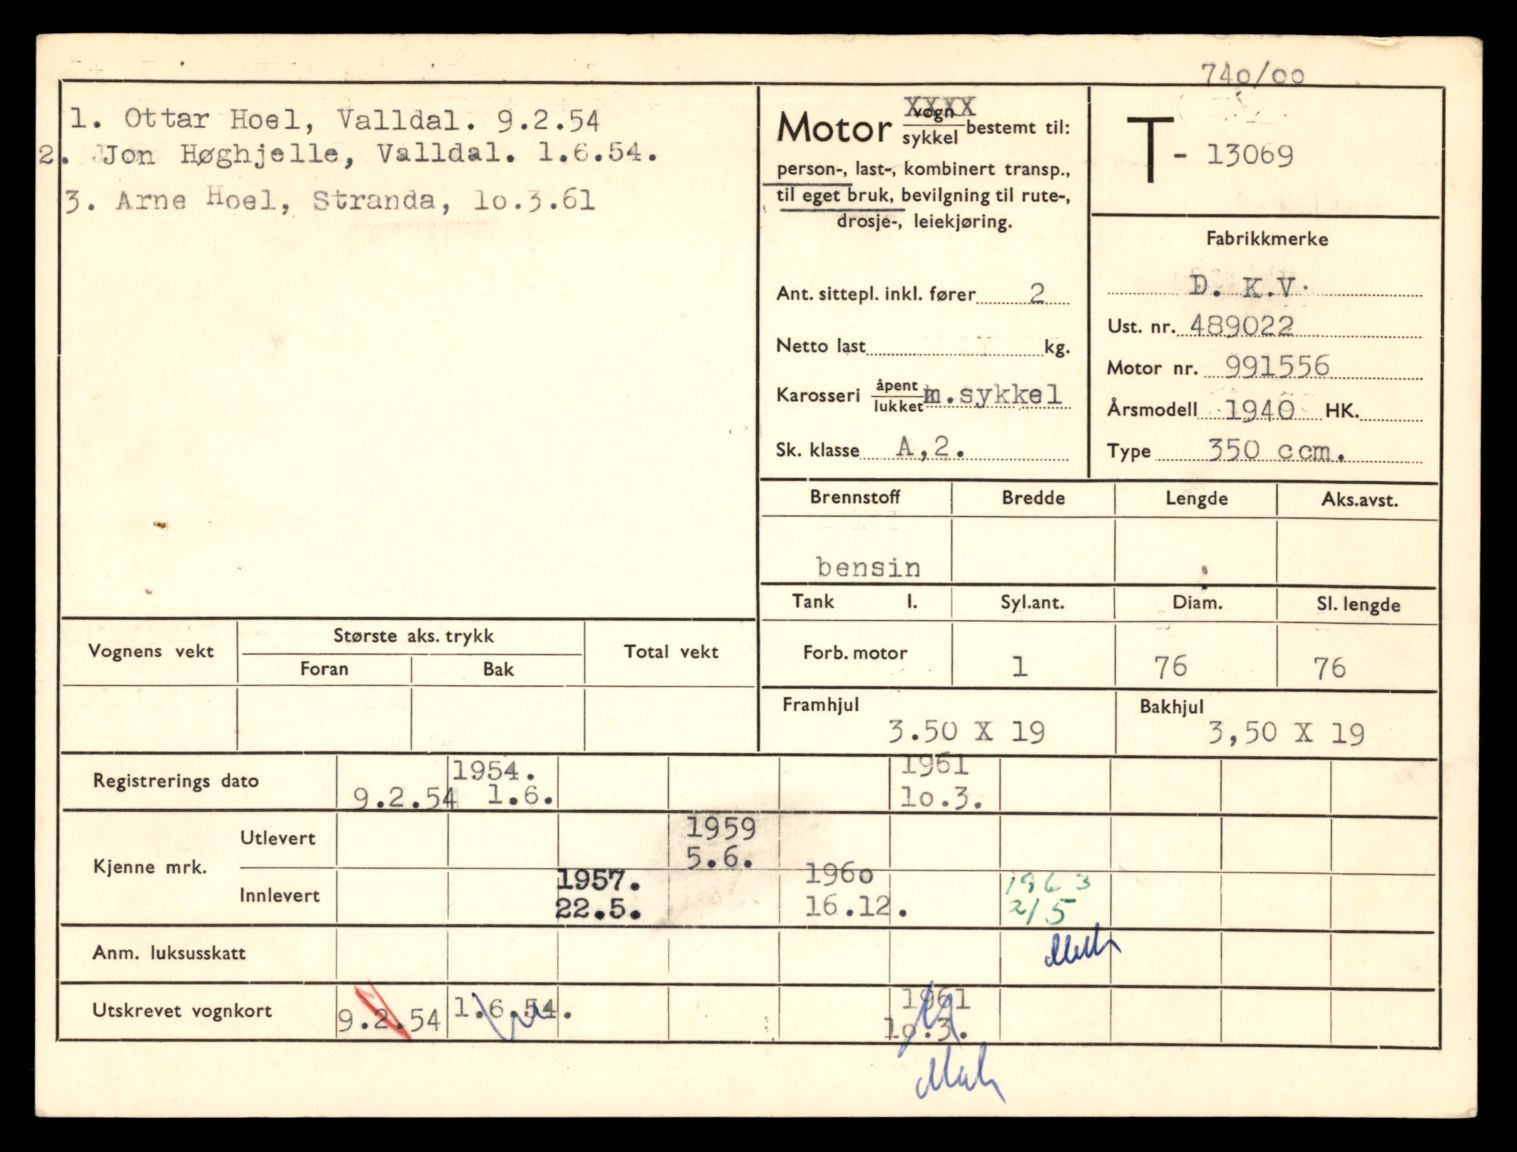 740/00
1. Ottar Hoel, Valldal. 9.2.54
2. Jon Høghjelle, Valldal. 1.6.54.
3. Arne Hoel, Stranda, 10.3.61
Motor vogn XXXX
sykkel bestemt til:
person-, last-, kombinert transp.,
til eget bruk, bevilgning til rute-,
drosje-, leiekjøring.
Ant. sittepl. inkl. fører 2
Netto last kg.
Karosseri åpent
lukket m.sykkel
Sk. klasse A,2.
T - 13069
Fabrikkmerke
D. K.V.
Ust. nr. 489022
Motor nr. 991556
Årsmodell 1940 HK.
Type 350 ccm.
Brennstoff Bredde Lengde Aks.avst.
bensin
Tank l. Syl.ant. Diam. Sl. lengde
Forb. motor 1 76 76
Framhjul Bakhjul
3.50 X 19 3,50 X 19
Vognens vekt Største aks. trykk Total vekt
Foran Bak
Registrerings dato 9.2.54 1954. 1.6. 1961 10.3.
Kjenne mrk. Utlevert 1959 5.6.
Innlevert 1957. 22.5. 1960 16.12. 1963 2/5
Anm. luksusskatt
Utskrevet vognkort 9.2.54 1.6.54. 1961 10.3.